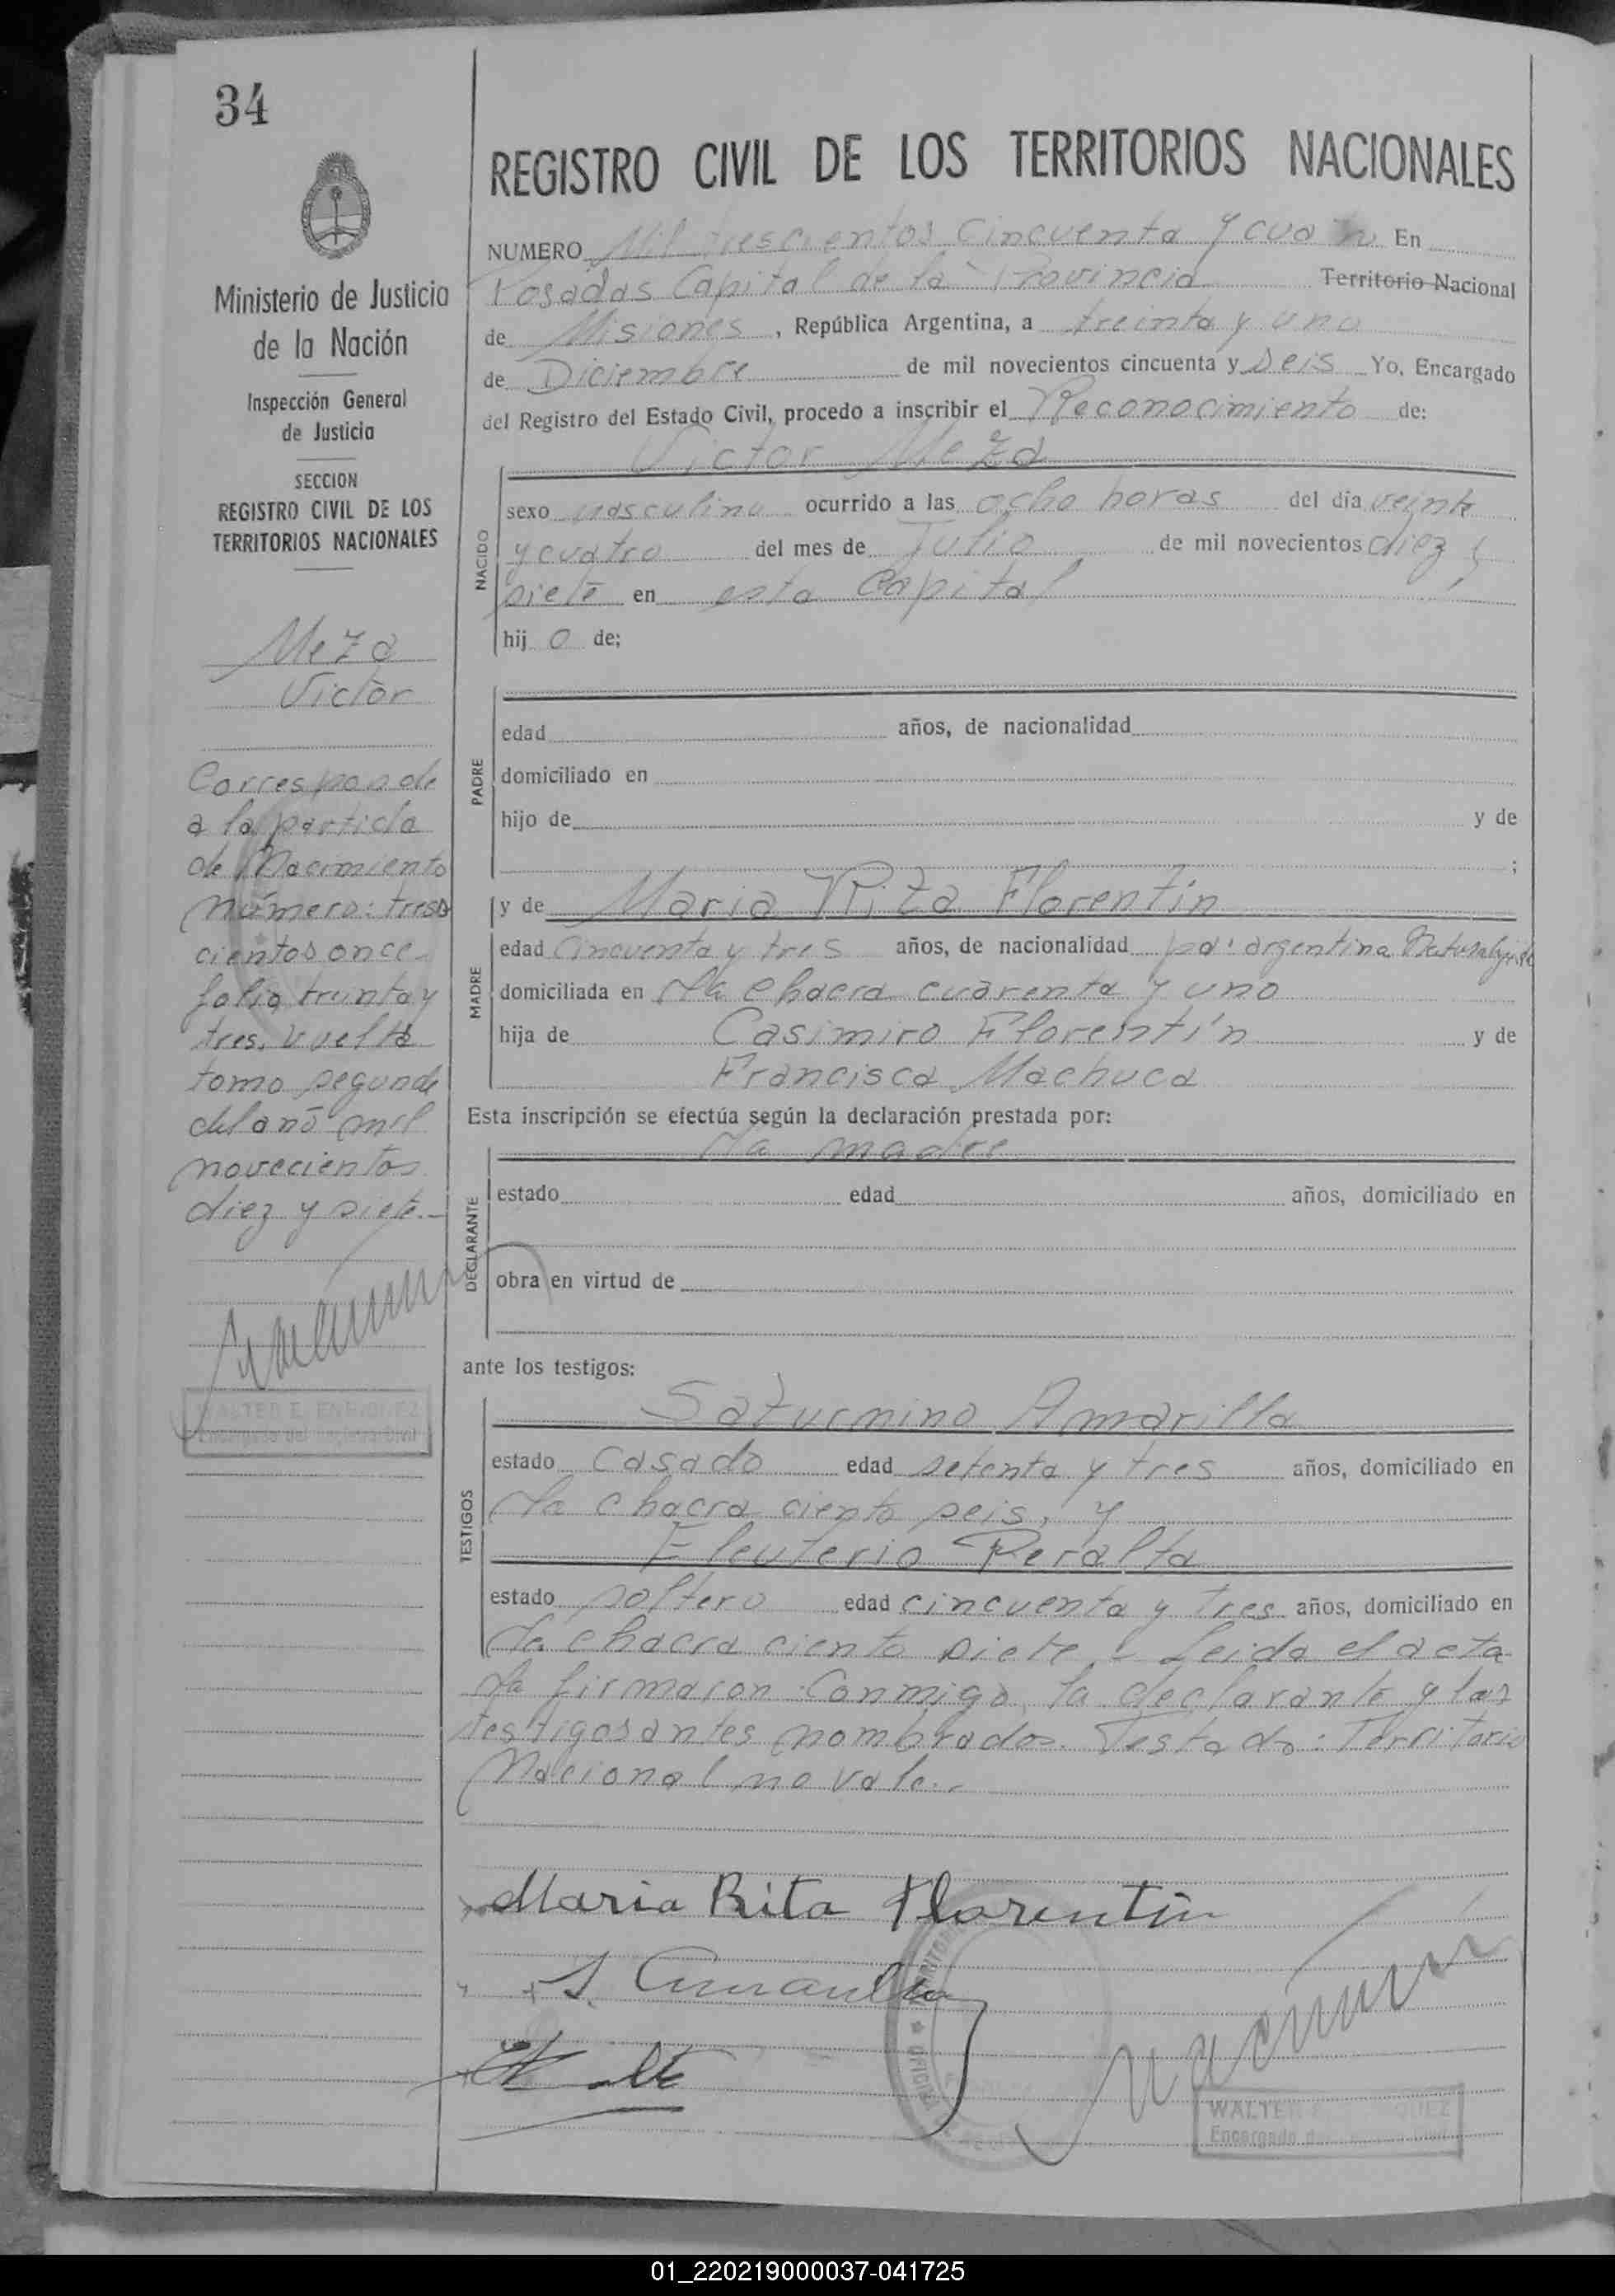 34
Ministerio de Justicia
de la Nación
Inspección General
de Justicia
SECCION
REGISTRO CIVIL DE LOS
TERRITORIOS NACIONALES
Meza
Victor
Corresponde
a la partida
de Nacimiento
número: tres
cientos once
folio treinta y
tres, vuelta
tomo segundo
del año mil
novecientos
diez y siete.-
WALTER E. ENRIQUEZ
Encargado del Registro Civil
REGISTRO CIVIL DE LOS TERRITORIOS NACIONALES
NUMERO Mil trescientos Cincuenta y cuatro En
Posadas Capital de la Provincia Territorio Nacional
de Misiones, República Argentina, a treinta y uno
de Diciembre de mil novecientos cincuenta y seis Yo, Encargado
del Registro del Estado Civil, procedo a inscribir el Reconocimiento de:
Victor Meza
NACIDO
sexo masculino ocurrido a las ocho horas del día veinte
y cuatro del mes de Julio de mil novecientos diez y
siete en esta Capital
hij o de;
PADRE
edad años, de nacionalidad
domiciliado en
hijo de y de
;
y de Maria Rita Florentín
MADRE
edad Cincuenta y tres años, de nacionalidad argentina
domiciliada en la chacra cuarenta y uno
hija de Casimiro Florentín y de
Francisca Machuca
Esta inscripción se efectúa según la declaración prestada por:
la madre
DECLARANTE
estado edad años, domiciliado en
obra en virtud de
ante los testigos:
TESTIGOS
Saturnino Amarilla
estado Casado edad setenta y tres años, domiciliado en
la chacra ciento seis, y
Eleuterio Peralta
estado soltero edad cincuenta y tres años, domiciliado en
la chacra ciento siete.- Leida el acta
la firmaron conmigo, la declarante y los
testigos antes nombrados. Testado: Territorio
Nacional no vale.-
Maria Rita Florentin
S. Amarilla
WALTER E. ENRIQUEZ
Encargado del Registro Civil
01_220219000037-041725